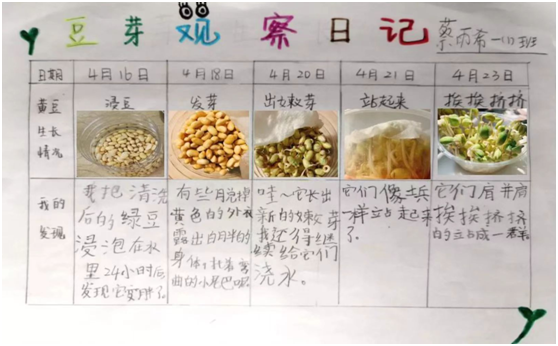 豆芽观察日记
一(1)班
日期 4月16日 4月18日 4月20日 4月21日 4月23日
黄豆生长情况 浸豆 发芽 出嫩芽 站起来 挨挨挤挤
我的发现
要把清洗
后的绿豆
浸泡在水
里24小时后
发现它变胖了
有些脱掉
黄色的外衣
露出白胖的
身体
曲的小尾巴呢
哇~它长出
新的嫩芽
我还得继
续给它们
浇水。
它们像士兵
一样站起来
了
它们肩并肩
挨挨挤挤
的站成一群